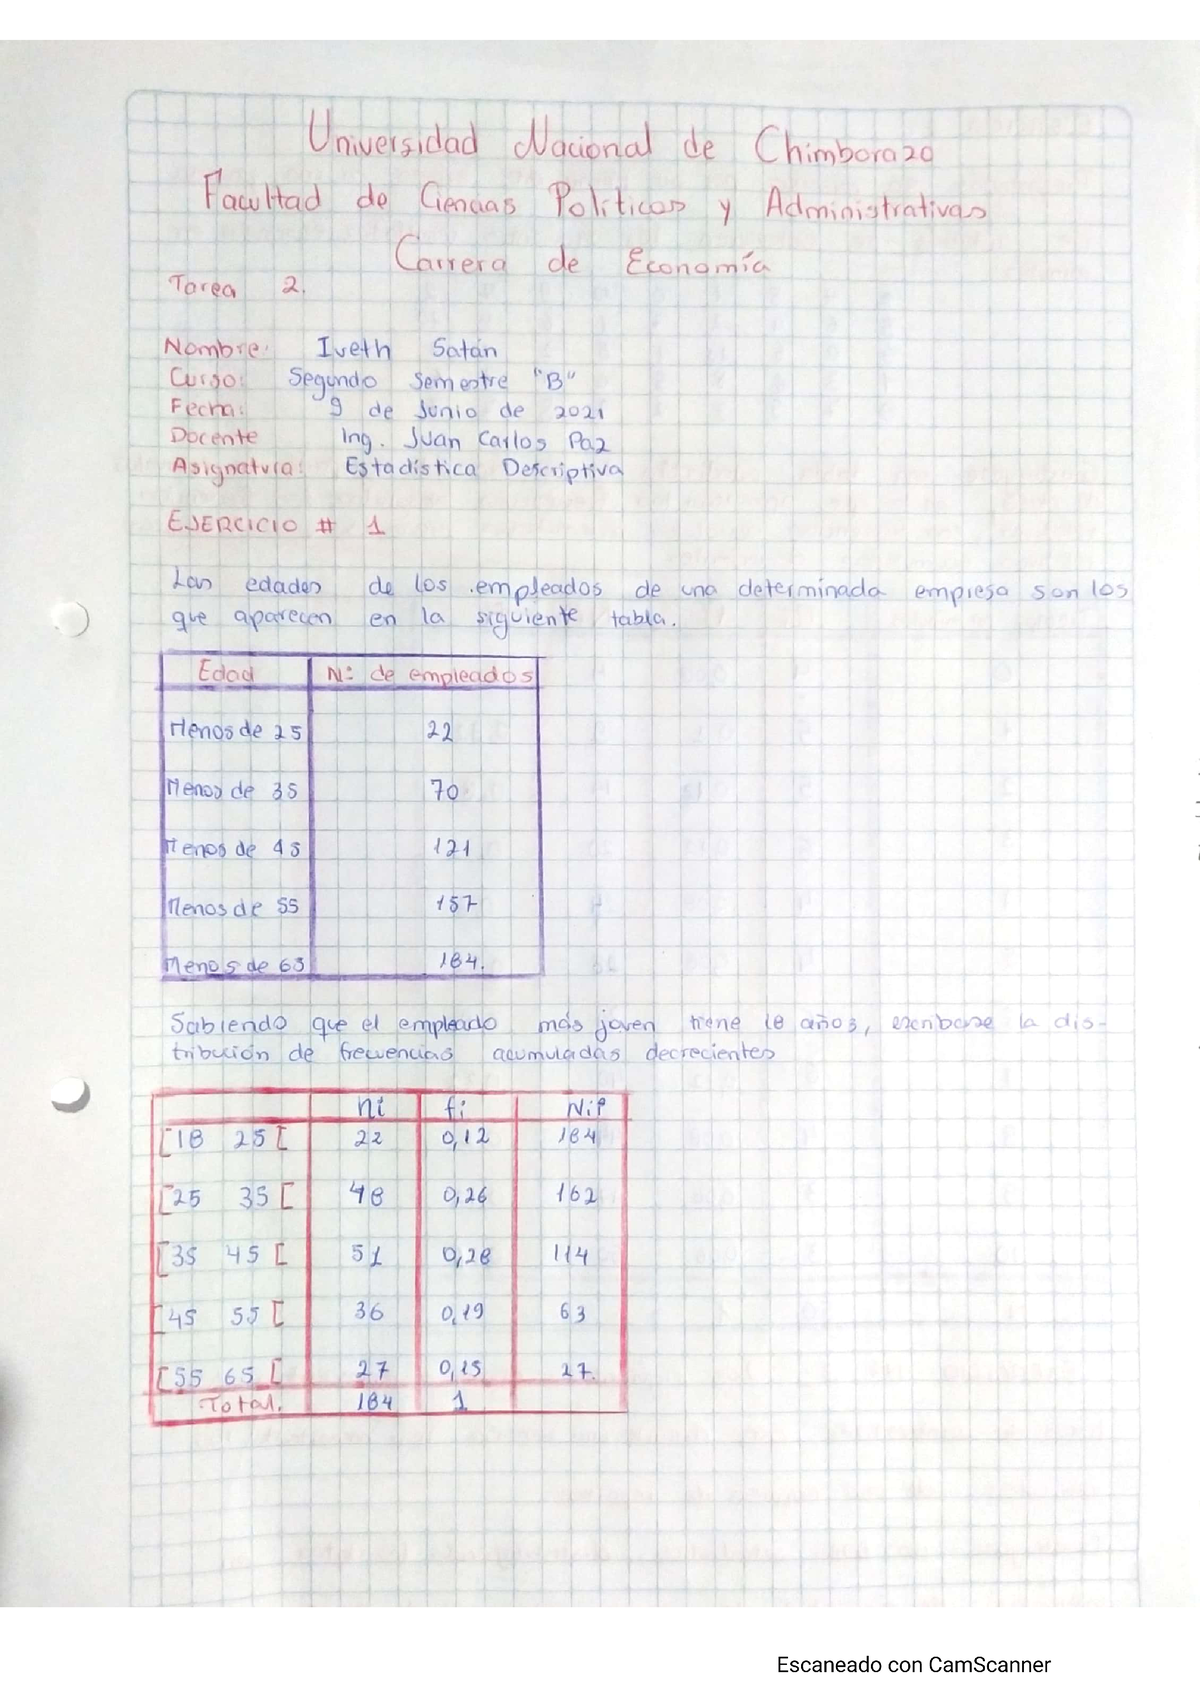 Universidad Nacional de Chimborazo
Facultad de Ciencias Políticas y Administrativas
Carrera de Economía
Tarea 2.
Nombre: Iveth Satán
Curso: Segundo Semestre "B"
Fecha: 9 de Junio de 2021
Docente Ing. Juan Carlos Paz
Asignatura: Estadística Descriptiva
EJERCICIO # 1
Las edades de los empleados de una determinada empresa son los
que aparecen en la siguiente tabla.
Edad N: de empleados
Menos de 25 22
Menos de 35 70
Menos de 45 121
Menos de 55 157
Menos de 65 184.
Sabiendo que el empleado más joven tiene 18 años, escribase la dis-
tribución de frecuencias acumuladas decrecientes
ni fi Ni↑
[18 25[ 22 0,12 184
[25 35[ 48 0,26 162
[35 45[ 51 0,28 114
[45 55[ 36 0,19 63
[55 65[ 27 0,15 27.
Total. 184 1
Escaneado con CamScanner